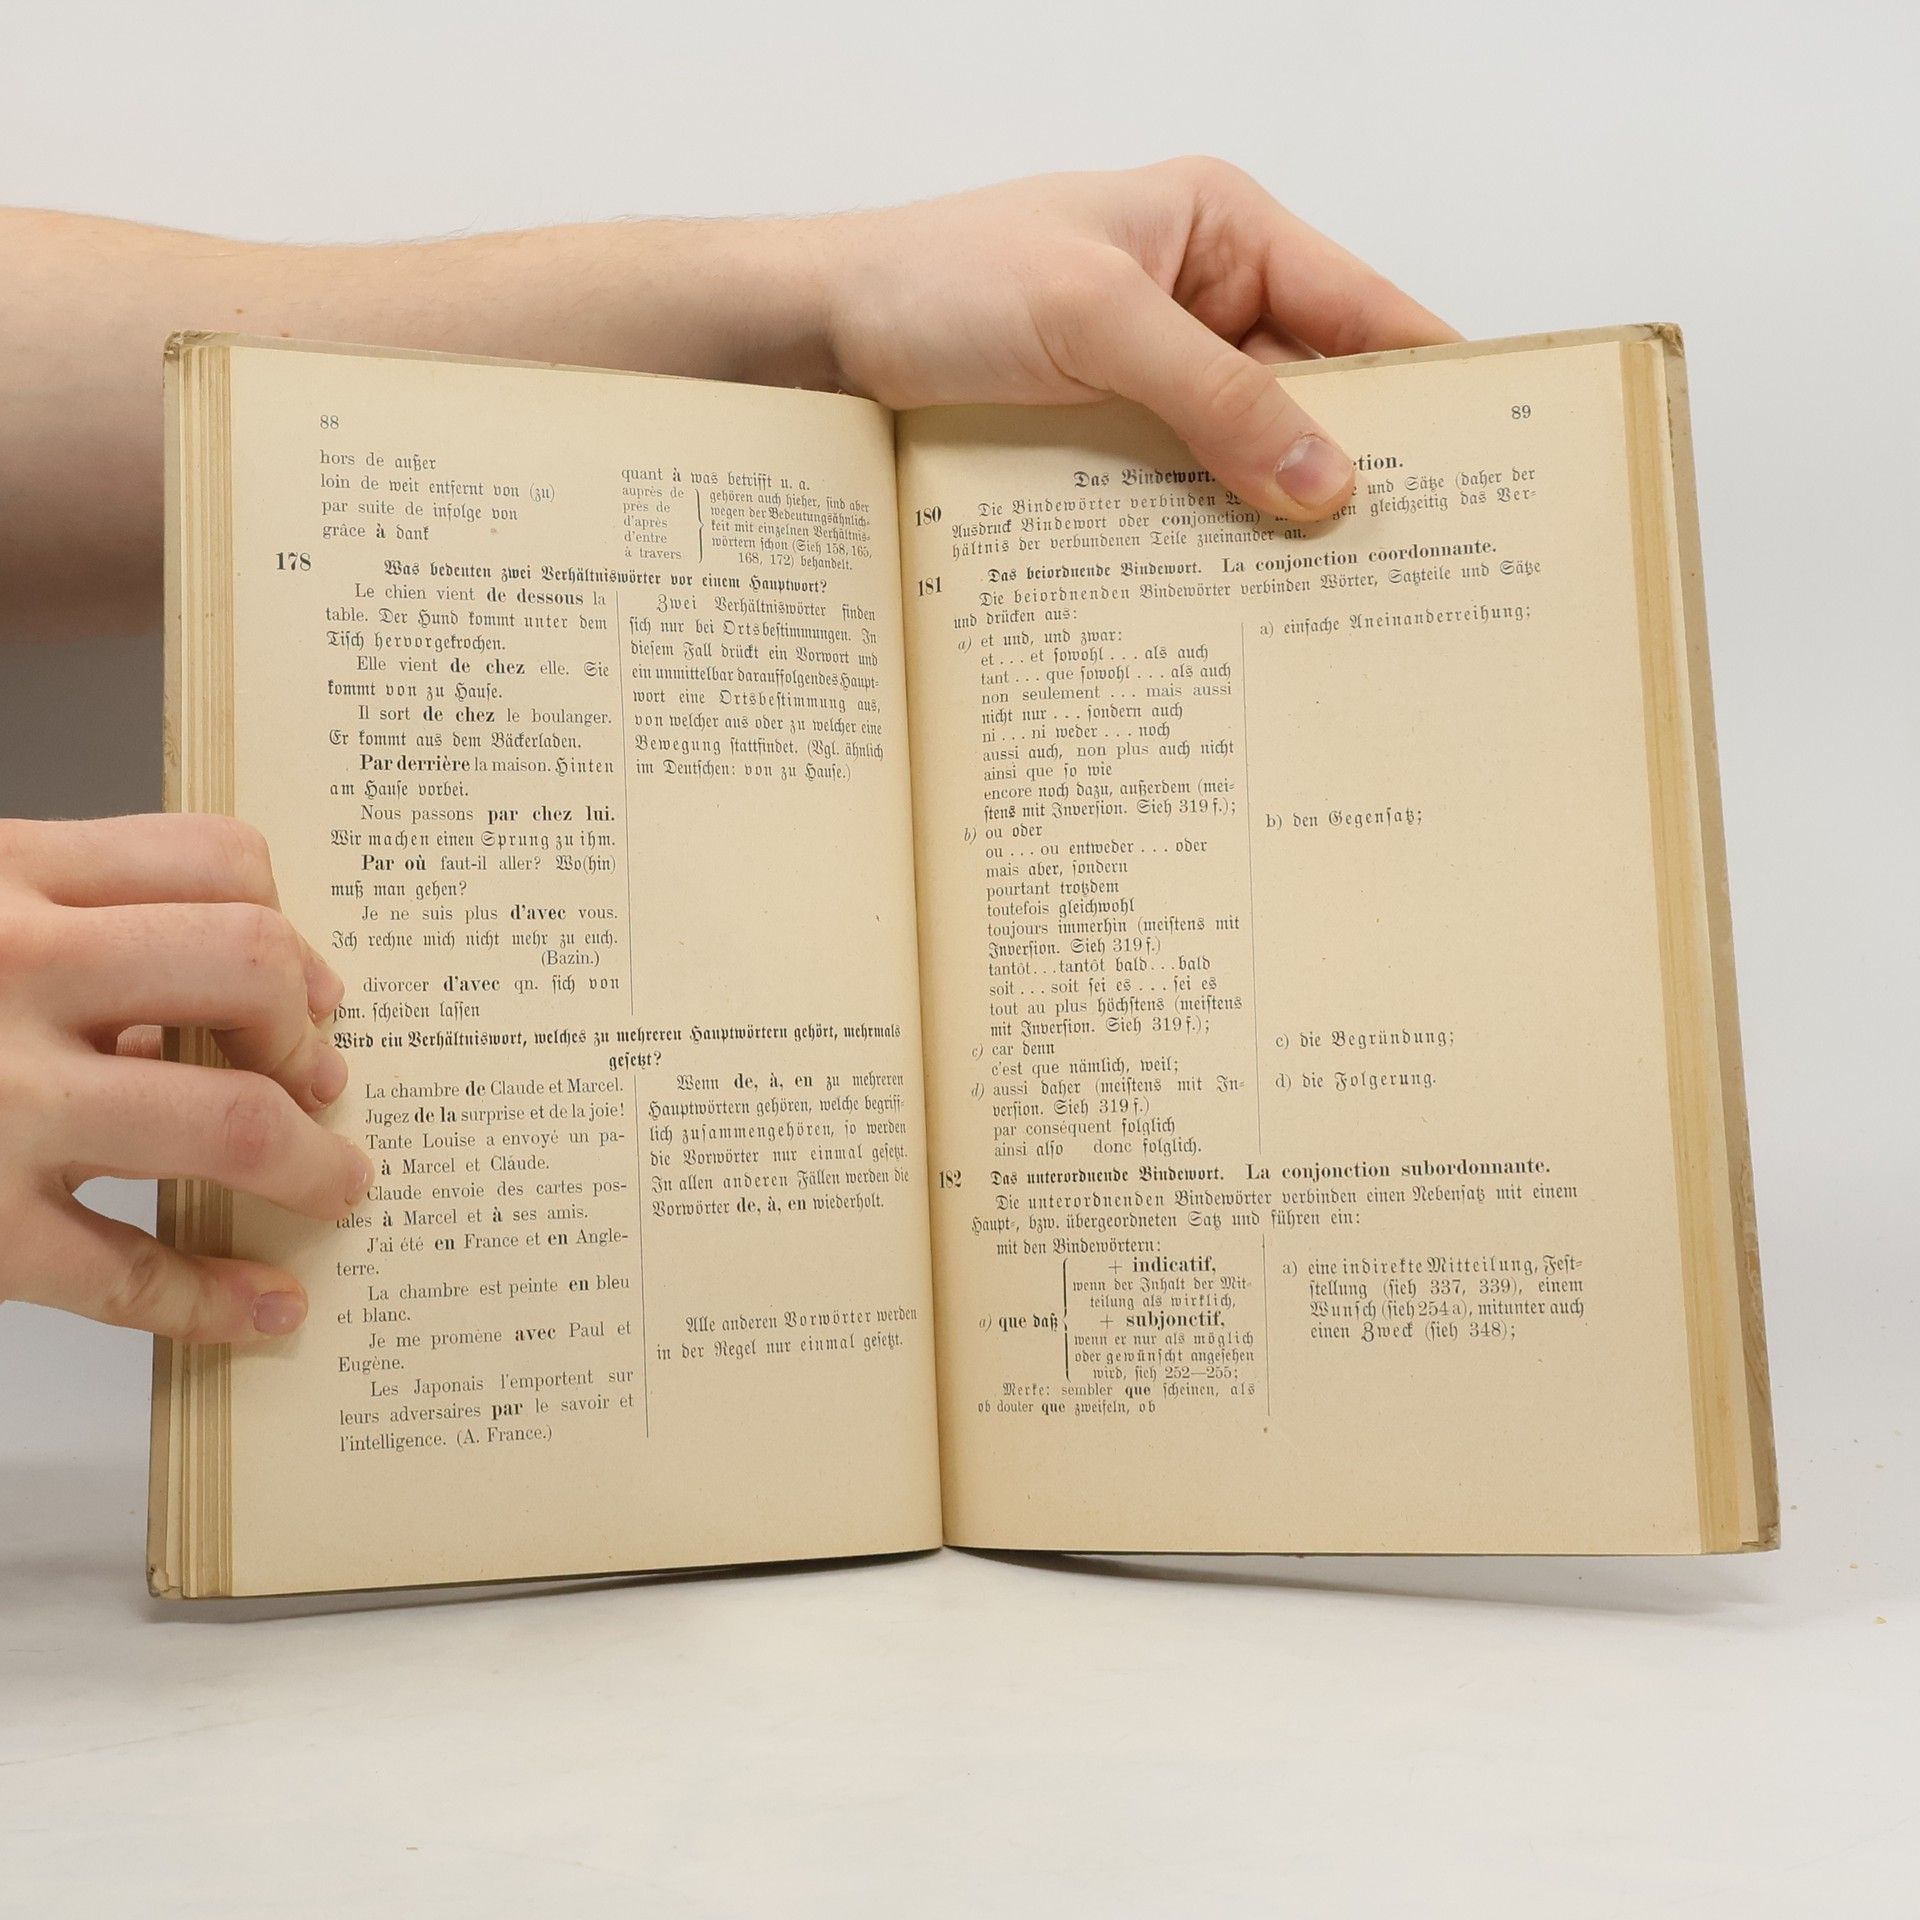 88
hors de außer
loin de weit entfernt von (zu)
par suite de infolge von
grâce à dank
quant à was betrifft u. a.
auprès de
près de
d'après
d'entre
à travers
gehören auch hieher, sind aber
wegen der Bedeutungsähnlich-
keit mit einzelnen Verhältnis-
wörtern schon (Sieh 158, 165,
168, 172) behandelt.
178
Was bedeuten zwei Verhältniswörter vor einem Hauptwort?
Le chien vient de dessous la
table. Der Hund kommt unter dem
Tisch hervorgekrochen.
Elle vient de chez elle. Sie
kommt von zu Hause.
Il sort de chez le boulanger.
Er kommt aus dem Bäckerladen.
Par derrière la maison. Hinten
am Hause vorbei.
Nous passons par chez lui.
Wir machen einen Sprung zu ihm.
Par où faut-il aller? Wo(hin)
muß man gehen?
Je ne suis plus d'avec vous.
Ich rechne mich nicht mehr zu euch.
(Bazin.)
divorcer d'avec qn. sich von
jdm. scheiden lassen
Zwei Verhältniswörter finden
sich nur bei Ortsbestimmungen. In
diesem Fall drückt ein Vorwort und
ein unmittelbar darauffolgendes Haupt-
wort eine Ortsbestimmung aus,
von welcher aus oder zu welcher eine
Bewegung stattfindet. (Vgl. ähnlich
im Deutschen: von zu Hause.)
Wird ein Verhältniswort, welches zu mehreren Hauptwörtern gehört, mehrmals
gesetzt?
La chambre de Claude et Marcel.
Jugez de la surprise et de la joie!
Tante Louise a envoyé un pa-
à Marcel et Claude.
Claude envoie des cartes pos-
tales à Marcel et à ses amis.
J'ai été en France et en Angle-
terre.
La chambre est peinte en bleu
et blanc.
Je me promène avec Paul et
Eugène.
Les Japonais l'emportent sur
leurs adversaires par le savoir et
l'intelligence. (A. France.)
Wenn de, à, en zu mehreren
Hauptwörtern gehören, welche begriff-
lich zusammengehören, so werden
die Vorwörter nur einmal gesetzt.
In allen anderen Fällen werden die
Vorwörter de, à, en wiederholt.
Alle anderen Vorwörter werden
in der Regel nur einmal gesetzt.
89
Das Bindewort. ction.
180
Die Bindewörter verbinden W e und Sätze (daher der
Ausdruck Bindewort oder conjonction) gen gleichzeitig das Ver-
hältnis der verbundenen Teile zueinander an.
181
Das beiordnende Bindewort. La conjonction coordonnante.
Die beiordnenden Bindewörter verbinden Wörter, Satzteile und Sätze
und drücken aus:
a) et und, und zwar:
et . . . et sowohl . . . als auch
tant . . . que sowohl . . . als auch
non seulement . . . mais aussi
nicht nur . . . sondern auch
ni . . . ni weder . . . noch
aussi auch, non plus auch nicht
ainsi que so wie
encore noch dazu, außerdem (mei-
stens mit Inversion. Sieh 319 f.);
b) ou oder
ou . . . ou entweder . . . oder
mais aber, sondern
pourtant trotzdem
toutefois gleichwohl
toujours immerhin (meistens mit
Inversion. Sieh 319 f.)
tantôt . . . tantôt bald . . . bald
soit . . . soit sei es . . . sei es
tout au plus höchstens (meistens
mit Inversion. Sieh 319 f.);
c) car denn
c'est que nämlich, weil;
d) aussi daher (meistens mit In-
version. Sieh 319 f.)
par conséquent folglich
ainsi also donc folglich.
a) einfache Aneinanderreihung;
b) den Gegensatz;
c) die Begründung;
d) die Folgerung.
182
Das unterordnende Bindewort. La conjonction subordonnante.
Die unterordnenden Bindewörter verbinden einen Nebensatz mit einem
Haupt-, bzw. übergeordneten Satz und führen ein:
mit den Bindewörtern:
a) que daß
+ indicatif,
wenn der Inhalt der Mit-
teilung als wirklich,
+ subjonctif,
wenn er nur als möglich
oder gewünscht angesehen
wird, sieh 252—255;
Merke: sembler que scheinen, als
ob douter que zweifeln, ob
a) eine indirekte Mitteilung, Fest-
stellung (sieh 337, 339), einem
Wunsch (sieh 254 a), mitunter auch
einen Zweck (sieh 348);